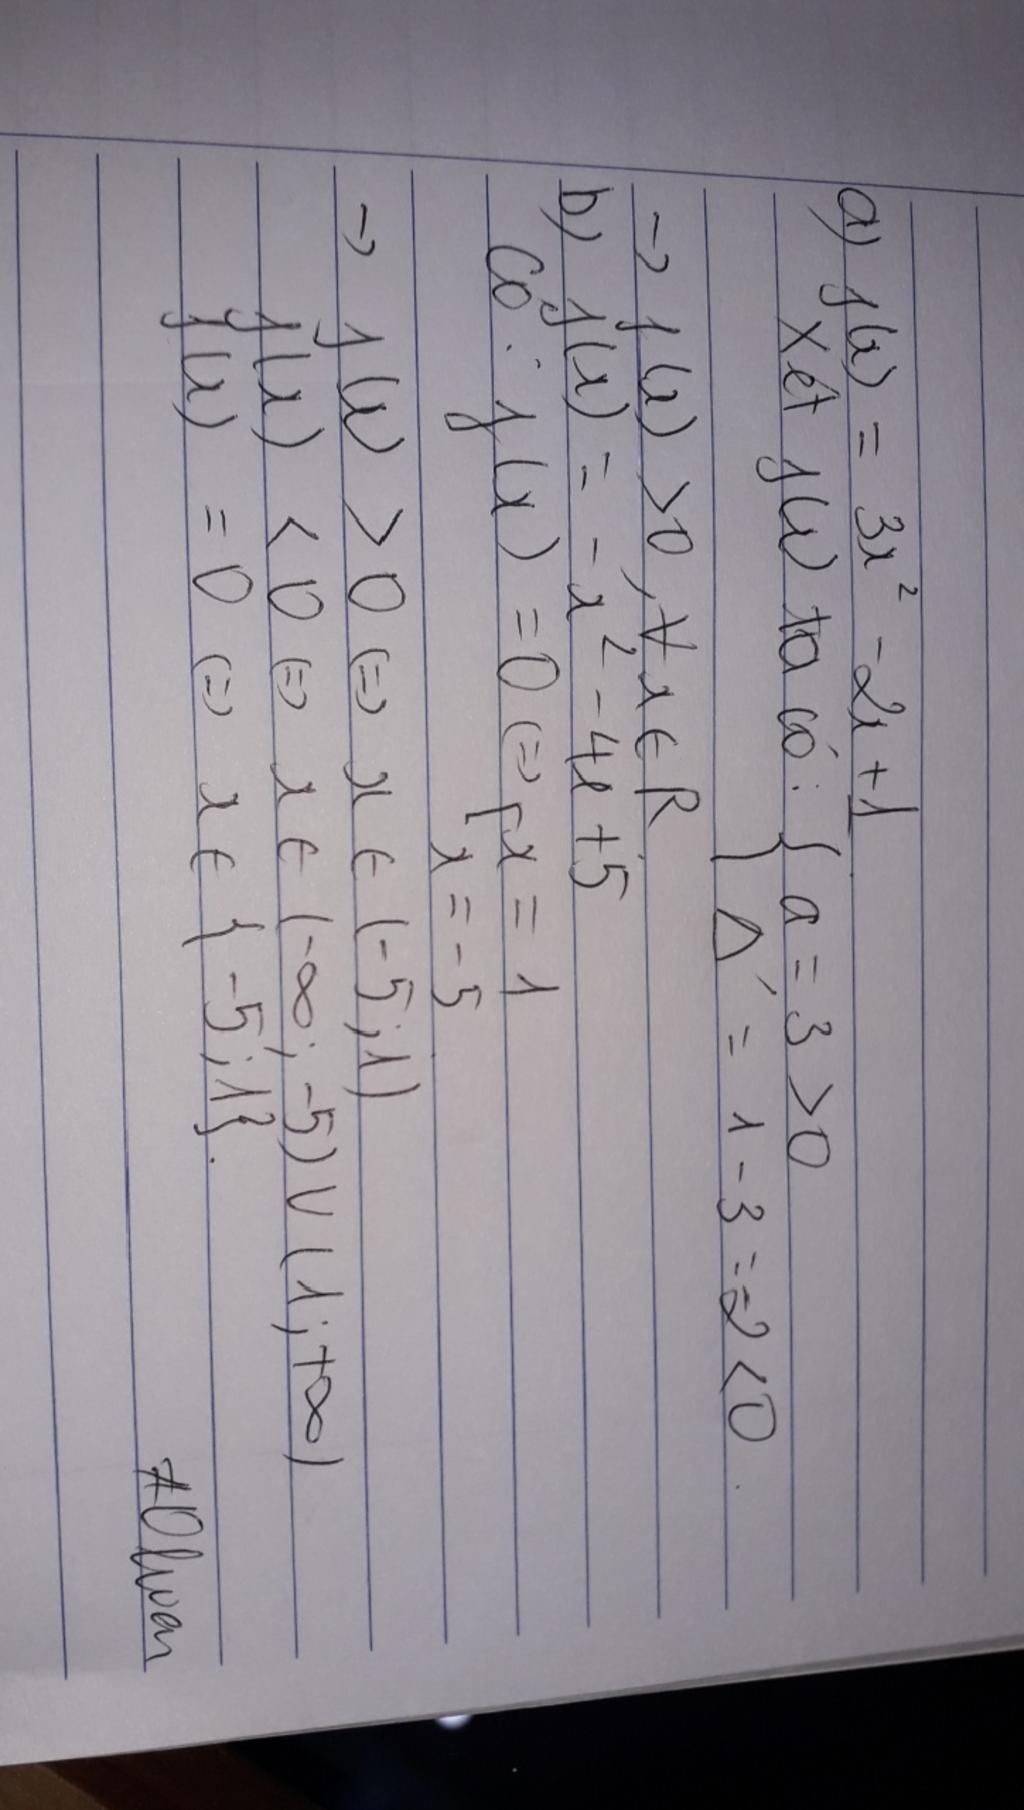 a) f(x) = 3x² - 2x + 1
Xét f(x) ta có: { a = 3 > 0
{ Δ' = 1 - 3 = -2 < 0.
→ f(x) > 0, ∀x ∈ R
b) f(x) = -x² - 4x + 5
Có: f(x) = 0 ⇔ [ x = 1
x = -5
→ f(x) > 0 ⇔ x ∈ (-5; 1)
f(x) < 0 ⇔ x ∈ (-∞; -5) ∪ (1; +∞)
f(x) = 0 ⇔ x ∈ {-5; 1}.